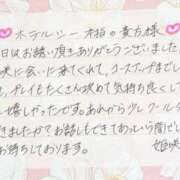 ホテルシー 本柏の貴方様
日はお誘い頂きありがとうございました
咲に会いに来てくれて、コースアップまで
プレイもたくさん攻めて気持ち良くして
嬉しかったです。あれから少しクールダ
きましたか？お話もできてあっという間だし
お待ちしております。
姫咲